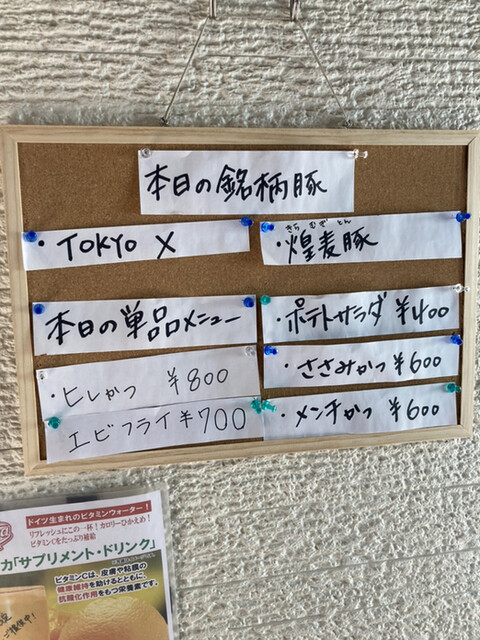 本日の銘柄豚
・TOKYO X
・煌麦豚
きら むぎ とん
本日の単品メニュー
・ヒレかつ ¥800
エビフライ ¥700
・ポテトサラダ ¥400
・ささみかつ ¥600
・メンチかつ ¥600
ドイツ生まれのビタミンウォーター!
リフレッシュにこの一杯!カロリーひかえめ!
ビタミンCをたっぷり補給
カ「サプリメント・ドリンク」
ビタミンCは、皮膚や粘膜の
健康維持を助けるとともに、
抗酸化作用をもつ栄養素です。